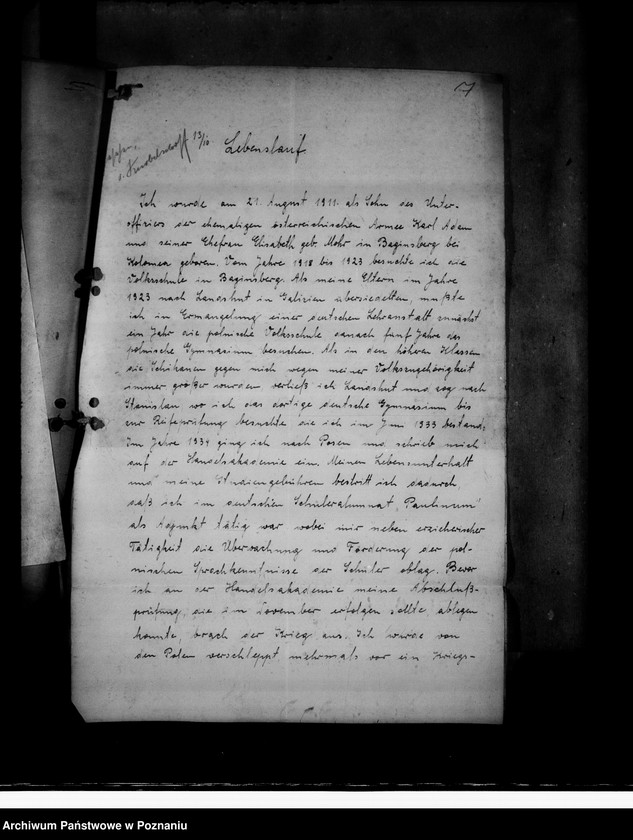 17
13/10.
Lebenslauf.
Ich wurde am 21. August 1911. als Sohn des Unter-
offiziers der ehemaligen österreichischen Armee Karl Adam
und seiner Ehefrau Elisabeth geb. Mohr in Baginsberg bei
Kolomea geboren. Vom Jahre 1918 bis 1923 besuchte ich die
Volksschule in Baginsberg. Als meine Eltern im Jahre
1923 nach Landshut in Galizien übersiedelten, mußte
ich in Ermangelung einer deutschen Lehranstalt zunächst
ein Jahr die polnische Volksschule danach fünf Jahre das
polnische Gymnasium besuchen. Als in den höheren Klassen
die Schikanen gegen mich wegen meiner Volkszugehörigkeit
immer größer wurden verließ ich Landshut und zog nach
Stanislau wo ich das dortige deutsche Gymnasium bis
zur Reifeprüfung besuchte die ich im Juni 1933 bestand.
Im Jahre 1934 ging ich nach Posen und schrieb mich
auf der Handelsakademie ein. Meinen Lebensunterhalt
und meine Studiengebühren bestritt ich dadurch
daß ich im deutschen Schüleralumnat "Paulinum"
als Adjunkt tätig war wobei mir neben erzieherischer
Tätigkeit die Überwachung und Förderung der pol-
nischen Sprachkenntnisse der Schüler oblag. Bevor
ich an der Handelsakademie meine Abschluß-
prüfung, die im November erfolgen sollte, ablegen
konnte, brach der Krieg aus. Ich wurde von
den Polen verschleppt, mehrmals vor ein Kriegs-
Archiwum Państwowe w Poznaniu